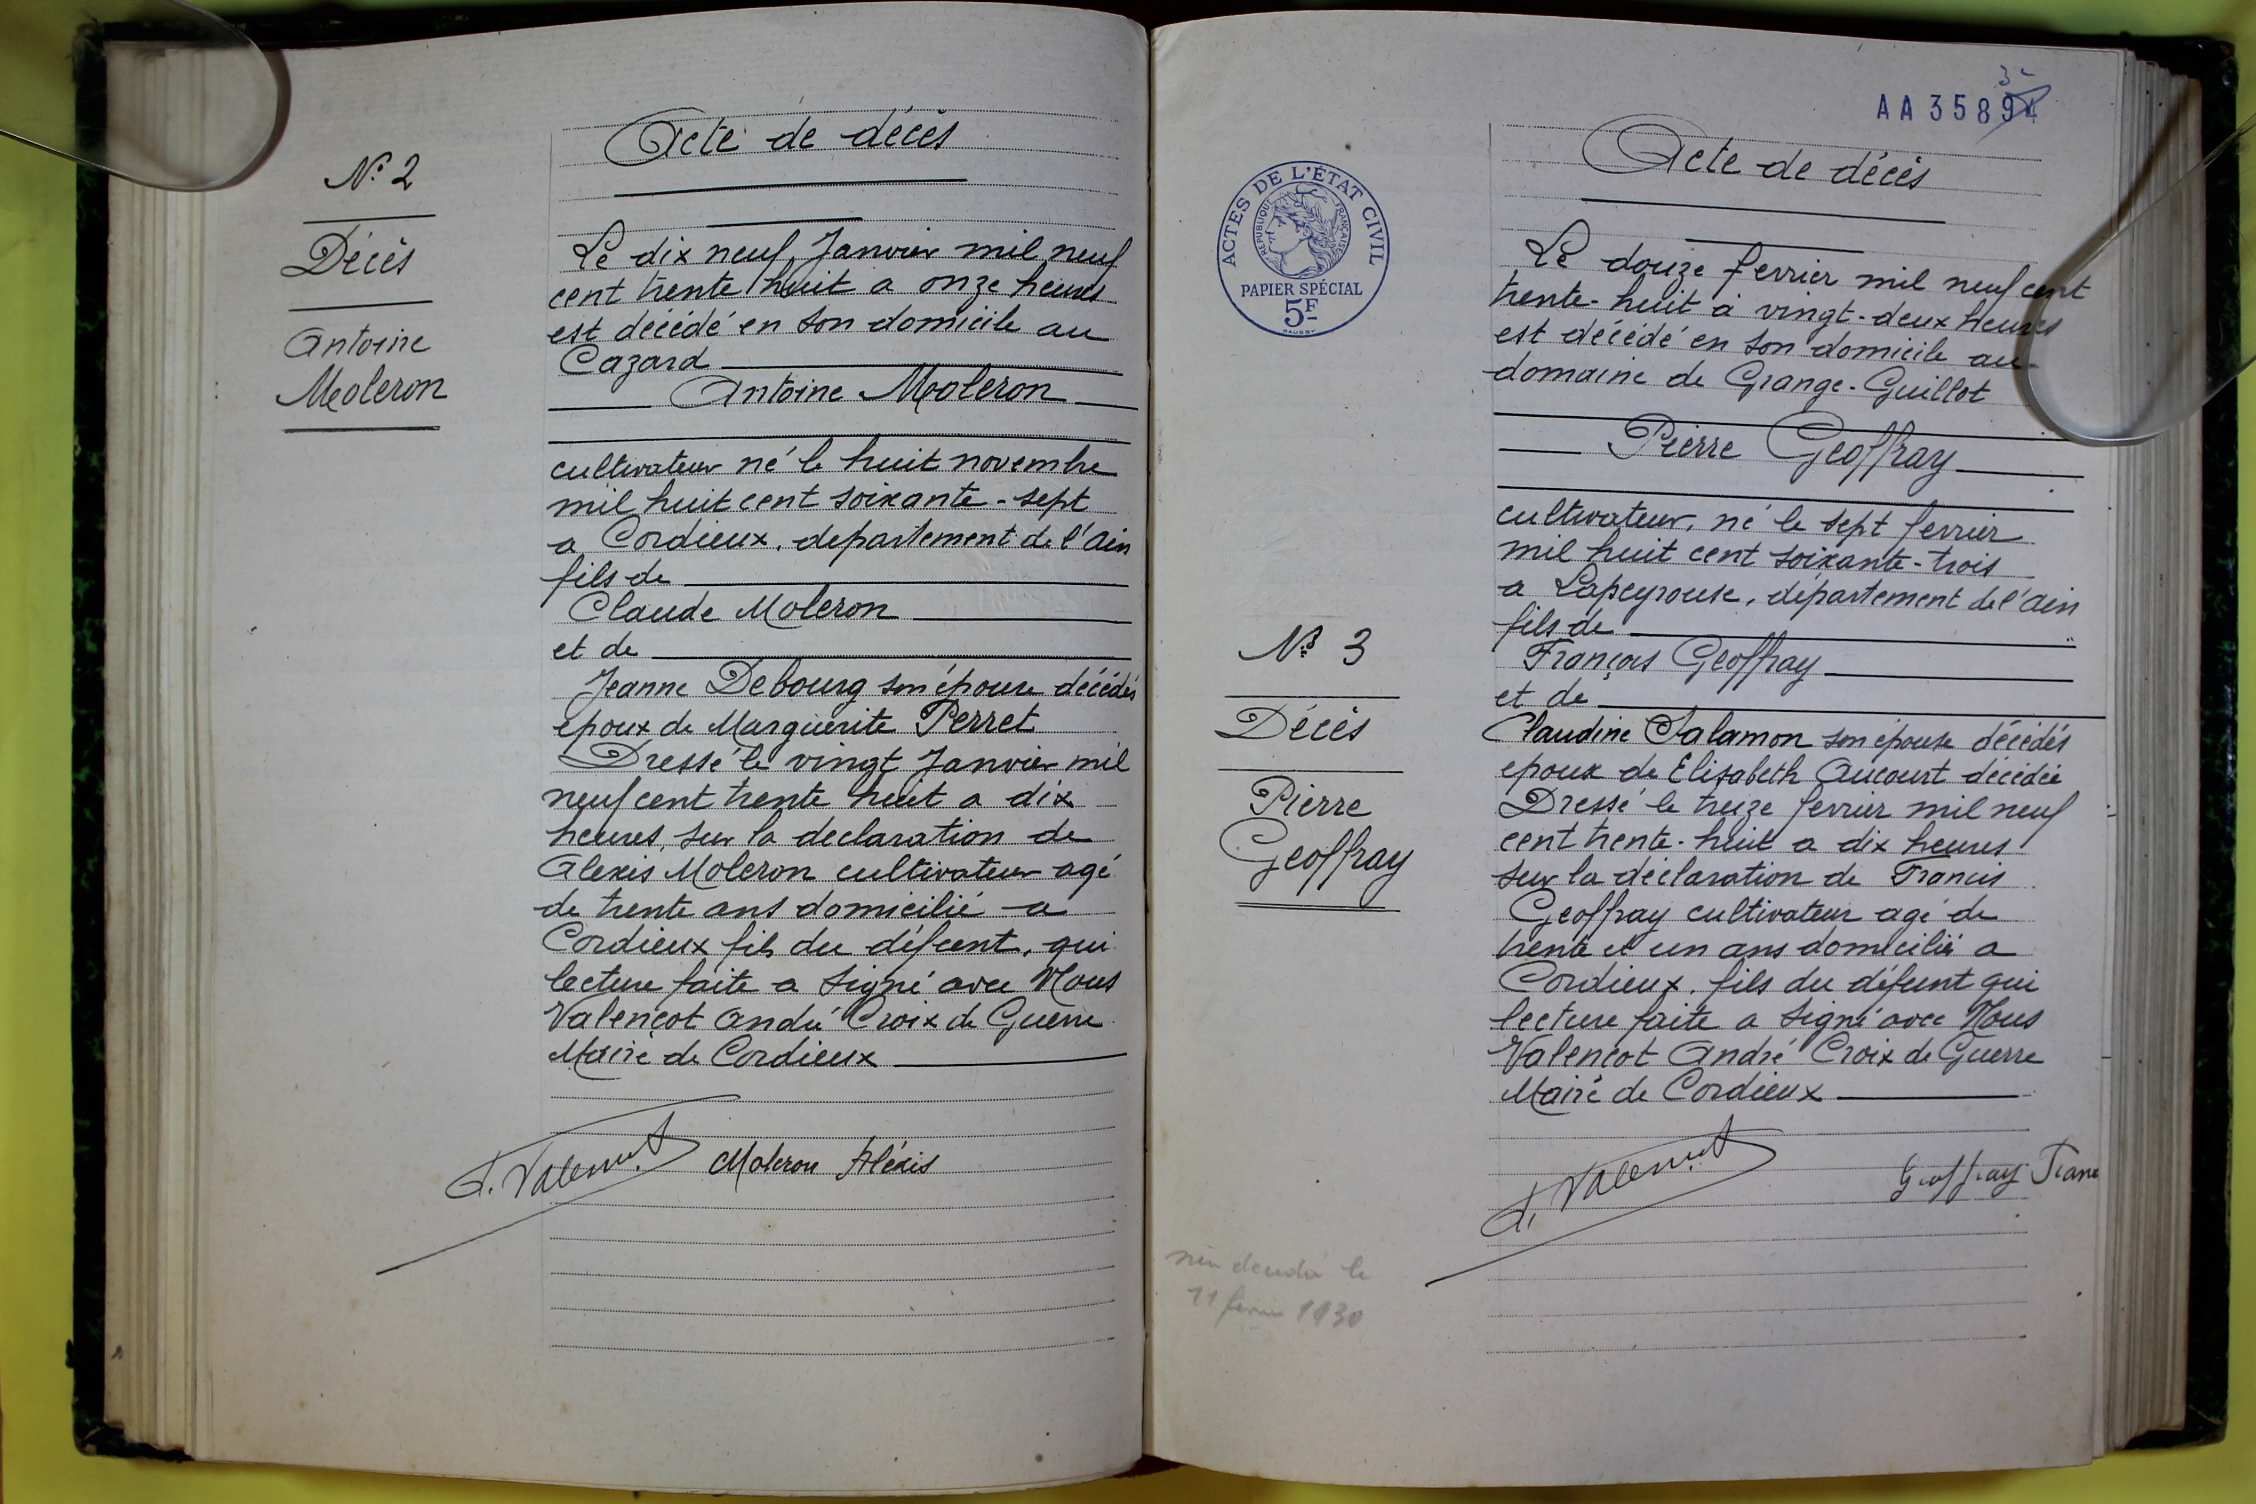 N° 2
Décès
Antoine
Moleron
Acte de décès
Le dix neuf Janvier mil neuf
cent trente huit a onze heures
est décédé en son domicile au
Cazard
Antoine Moleron
cultivateur né le huit novembre
mil huit cent soixante-sept
a Cordieux, departement de l'Ain
fils de
Claude Moleron
et de
Jeanne Debourg son épouse décédés
epoux de Marguerite Perret
Dressé le vingt Janvier mil
neuf cent trente huit a dix
heures, sur la declaration de
Alexis Moleron cultivateur agé
de trente ans domicilié a
Cordieux fils du défunt, qui
lecture faite a signé avec Nous
Valençot André Croix de Guerre
Maire de Cordieux
A. Valençot Moleron Aléxis
AA 3589
ACTES DE L'ÉTAT CIVIL
RÉPUBLIQUE FRANÇAISE
PAPIER SPÉCIAL
5F
N° 3
Décès
Pierre
Geoffray
Acte de décès
Le douze fevrier mil neuf cent
trente-huit à vingt-deux heures
est décédé en son domicile au
domaine de Grange-Guillot
Pierre Geoffray
cultivateur, né le sept fevrier
mil huit cent soixante-trois
a Lapeyrouse, département de l'Ain
fils de
François Geoffray
et de
Claudine Salamon son épouse décédés
epoux de Elisabeth Aucourt décédée
Dressé le treize fevrier mil neuf
cent trente-huit a dix heures
sur la déclaration de Francis
Geoffray cultivateur agé de
trente et un ans domicilié a
Cordieux, fils du défunt qui
lecture faite a signé avec Nous
Valençot André Croix de Guerre
Maire de Cordieux
A. Valençot Geoffray Franc
le
11 fevrier 1930